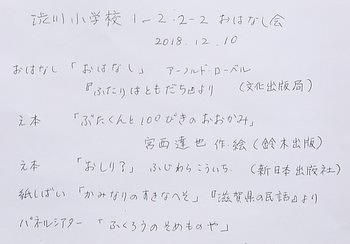 渋川小学校 1-2・2-2 おはなし会
2018.12.10
おはなし 「おはなし」 アーノルド・ローベル
『ふたりはともだち』より (文化出版局)
え本 「ぶたくんと100ぴきのおおかみ」
宮西達也 作.絵 (鈴木出版)
え本 「おしり了」 ふじわらこういち (新日本出版社)
紙しばい 「かみなりのすきなへそ」 『滋賀県の民話』より
パネルシアター 「ふくろうのそめものや」